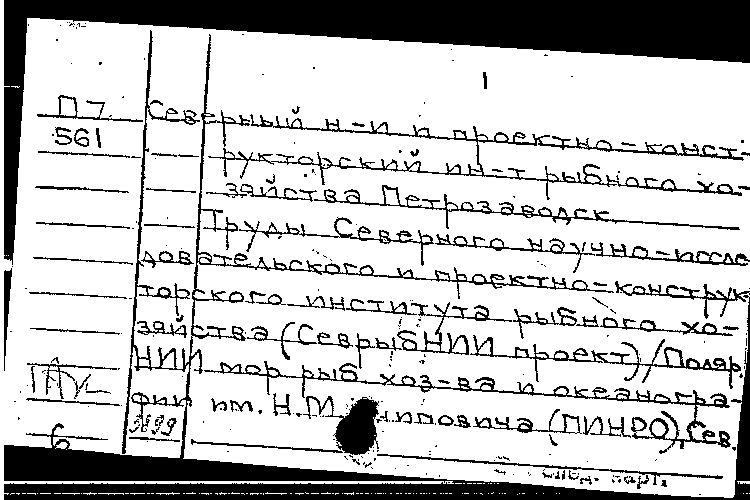 1
П7 Северный н-и и проектно-конст-
561 рукторский ин-т рыбного хо-
зяйства Петрозаводск.
Труды Северного научно-иссле
довательского и проектно-конструк
торского института рыбного хо-
зяйства (СеврыбНИИпроект)/Поляр.
НИИ мор рыб хоз-ва и океаногра-
фии им. Н.М. Книповича (ПИНРО), Сев.
6
след. карт.